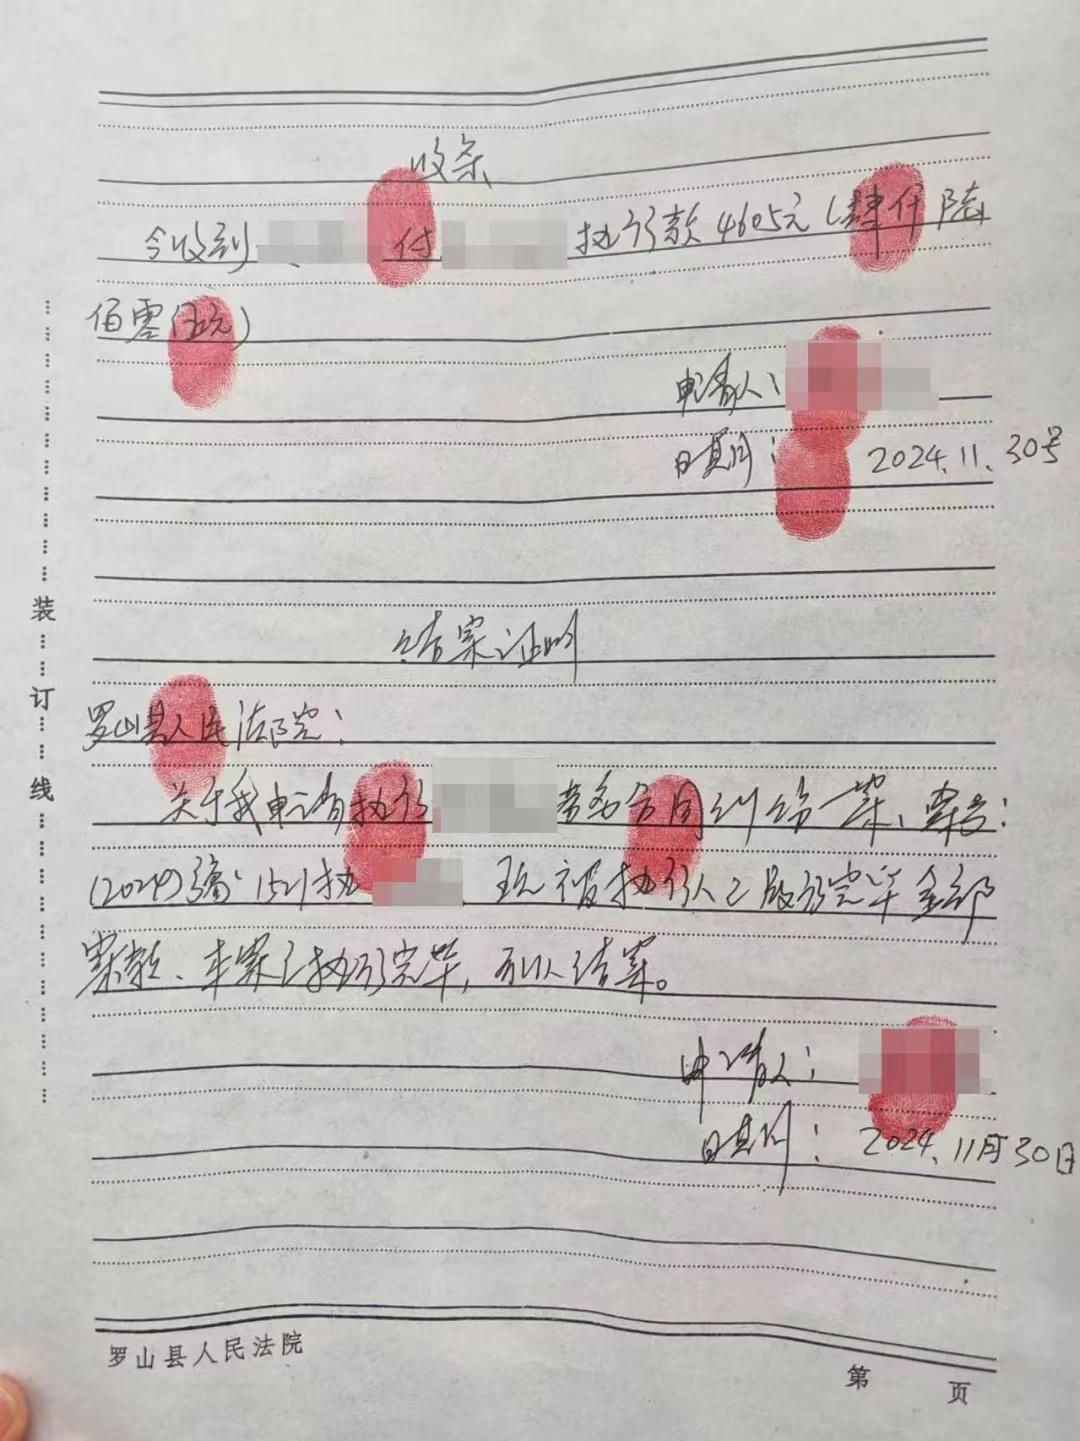 收条
今收到 、 付 执行款4605元(肆仟陆
佰零伍元)
申请人:
日期: 2024.11.30号
结案证明
罗山县人民法院:
关于我申请执行 劳务合同纠纷一案、案号:
(2024)豫1521执 现被执行人已履行完毕全部
案款、本案已执行完毕,可以结案。
申请人:
日期: 2024.11月30日
装订线
罗山县人民法院
第 页